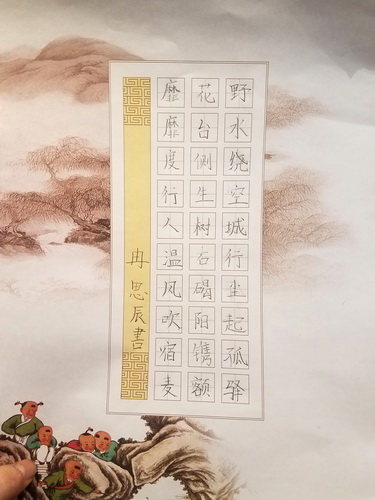 野水绕空城行尘起孤驿
花台侧生树石碣阳镌额
靡靡度行人温风吹宿麦
冉思辰書